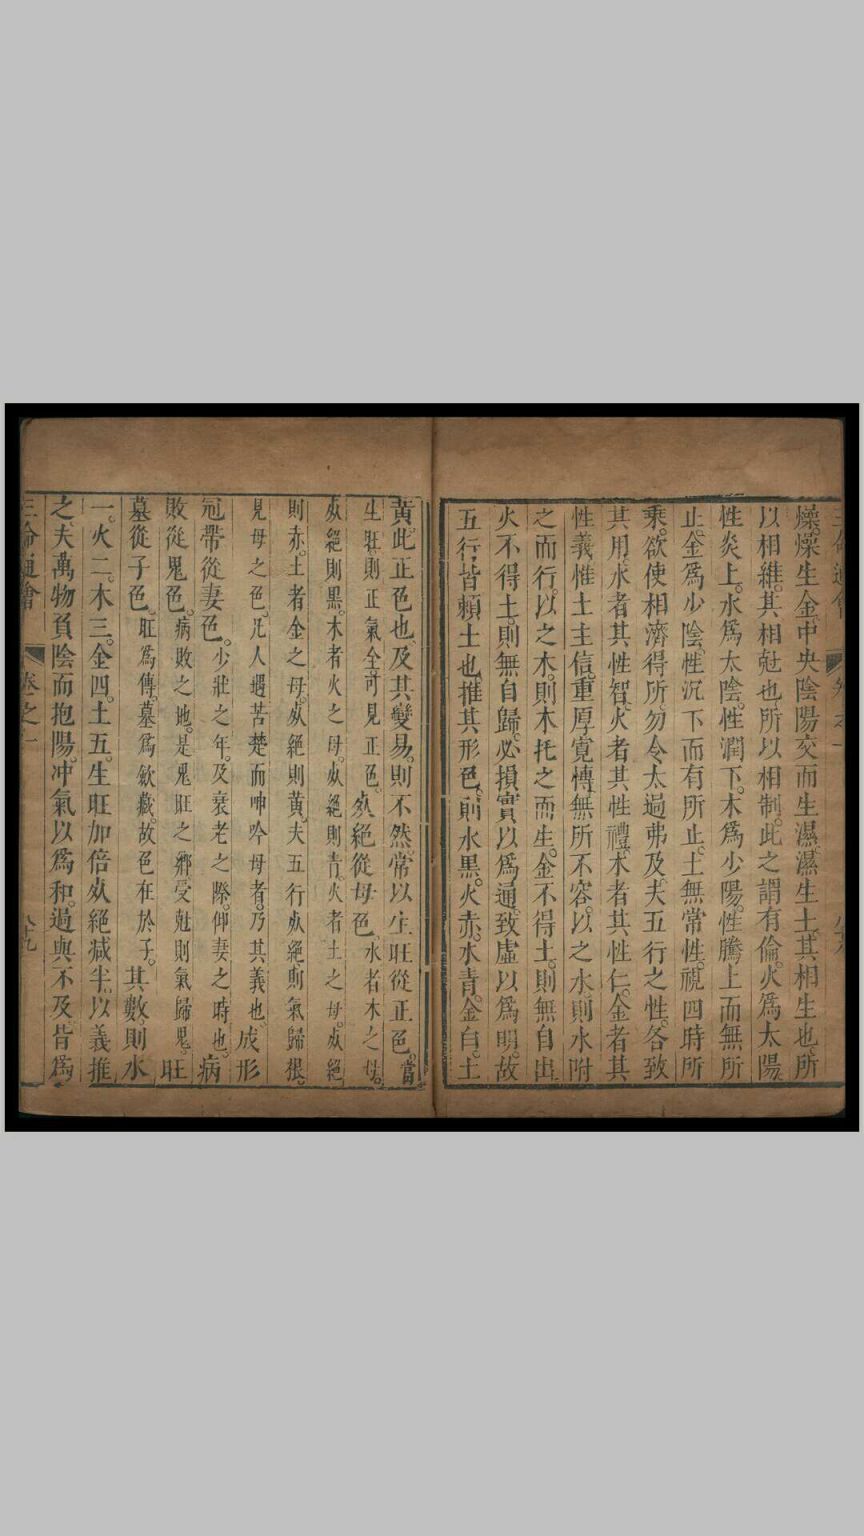 燥。燥生金。中央陰陽交而生濕。濕生土。其相生也。所
以相維。其相尅也。所以相制。此之謂有倫。火爲太陽。
性炎上。水爲太陰。性潤下。木爲少陽。性騰上而無所
止。金爲少陰。性沉下而有所止。土無常性。視四時所
乘。欲使相濟得所。勿令太過弗及。夫五行之性。各致
其用。水者其性智。火者其性禮。木者其性仁。金者其
性義。惟土主信。重厚寬慱。無所不容。以之水。則水附
之而行。以之木。則木托之而生。金不得土。則無自出。
火不得土。則無自歸。必損實以爲通。致虛以爲明。故
五行皆頼土也。推其形色。則水黑。火赤。木青。金白。土
黄。此正色也。及其變易。則不然。常以生旺從正色。當
生旺則正氣全。可見正色。㱘絕從母色。水者木之母。
㱘絕則黑。木者火之母。㱘絕則青。火者土之母。㱘絕
則赤。土者金之母。㱘絕則黄。夫五行㱘絕。則氣歸根。
見母之色。凡人遇苦楚而呻吟母者。乃其義也。成形
冠帶從妻色。少壯之年。及衰老之際。仰妻之時也。病
敗從鬼色。病敗之地。是鬼旺之鄉。受尅則氣歸鬼。旺
墓從子色。旺爲傳。墓爲歛藏。故色在於子。其數則水
一。火二。木三。金四。土五。生旺加倍。㱘絕减半。以義推
之。夫萬物負陰而抱陽。冲氣以爲和。過與不及。皆爲
三命通會 卷之一 八十九